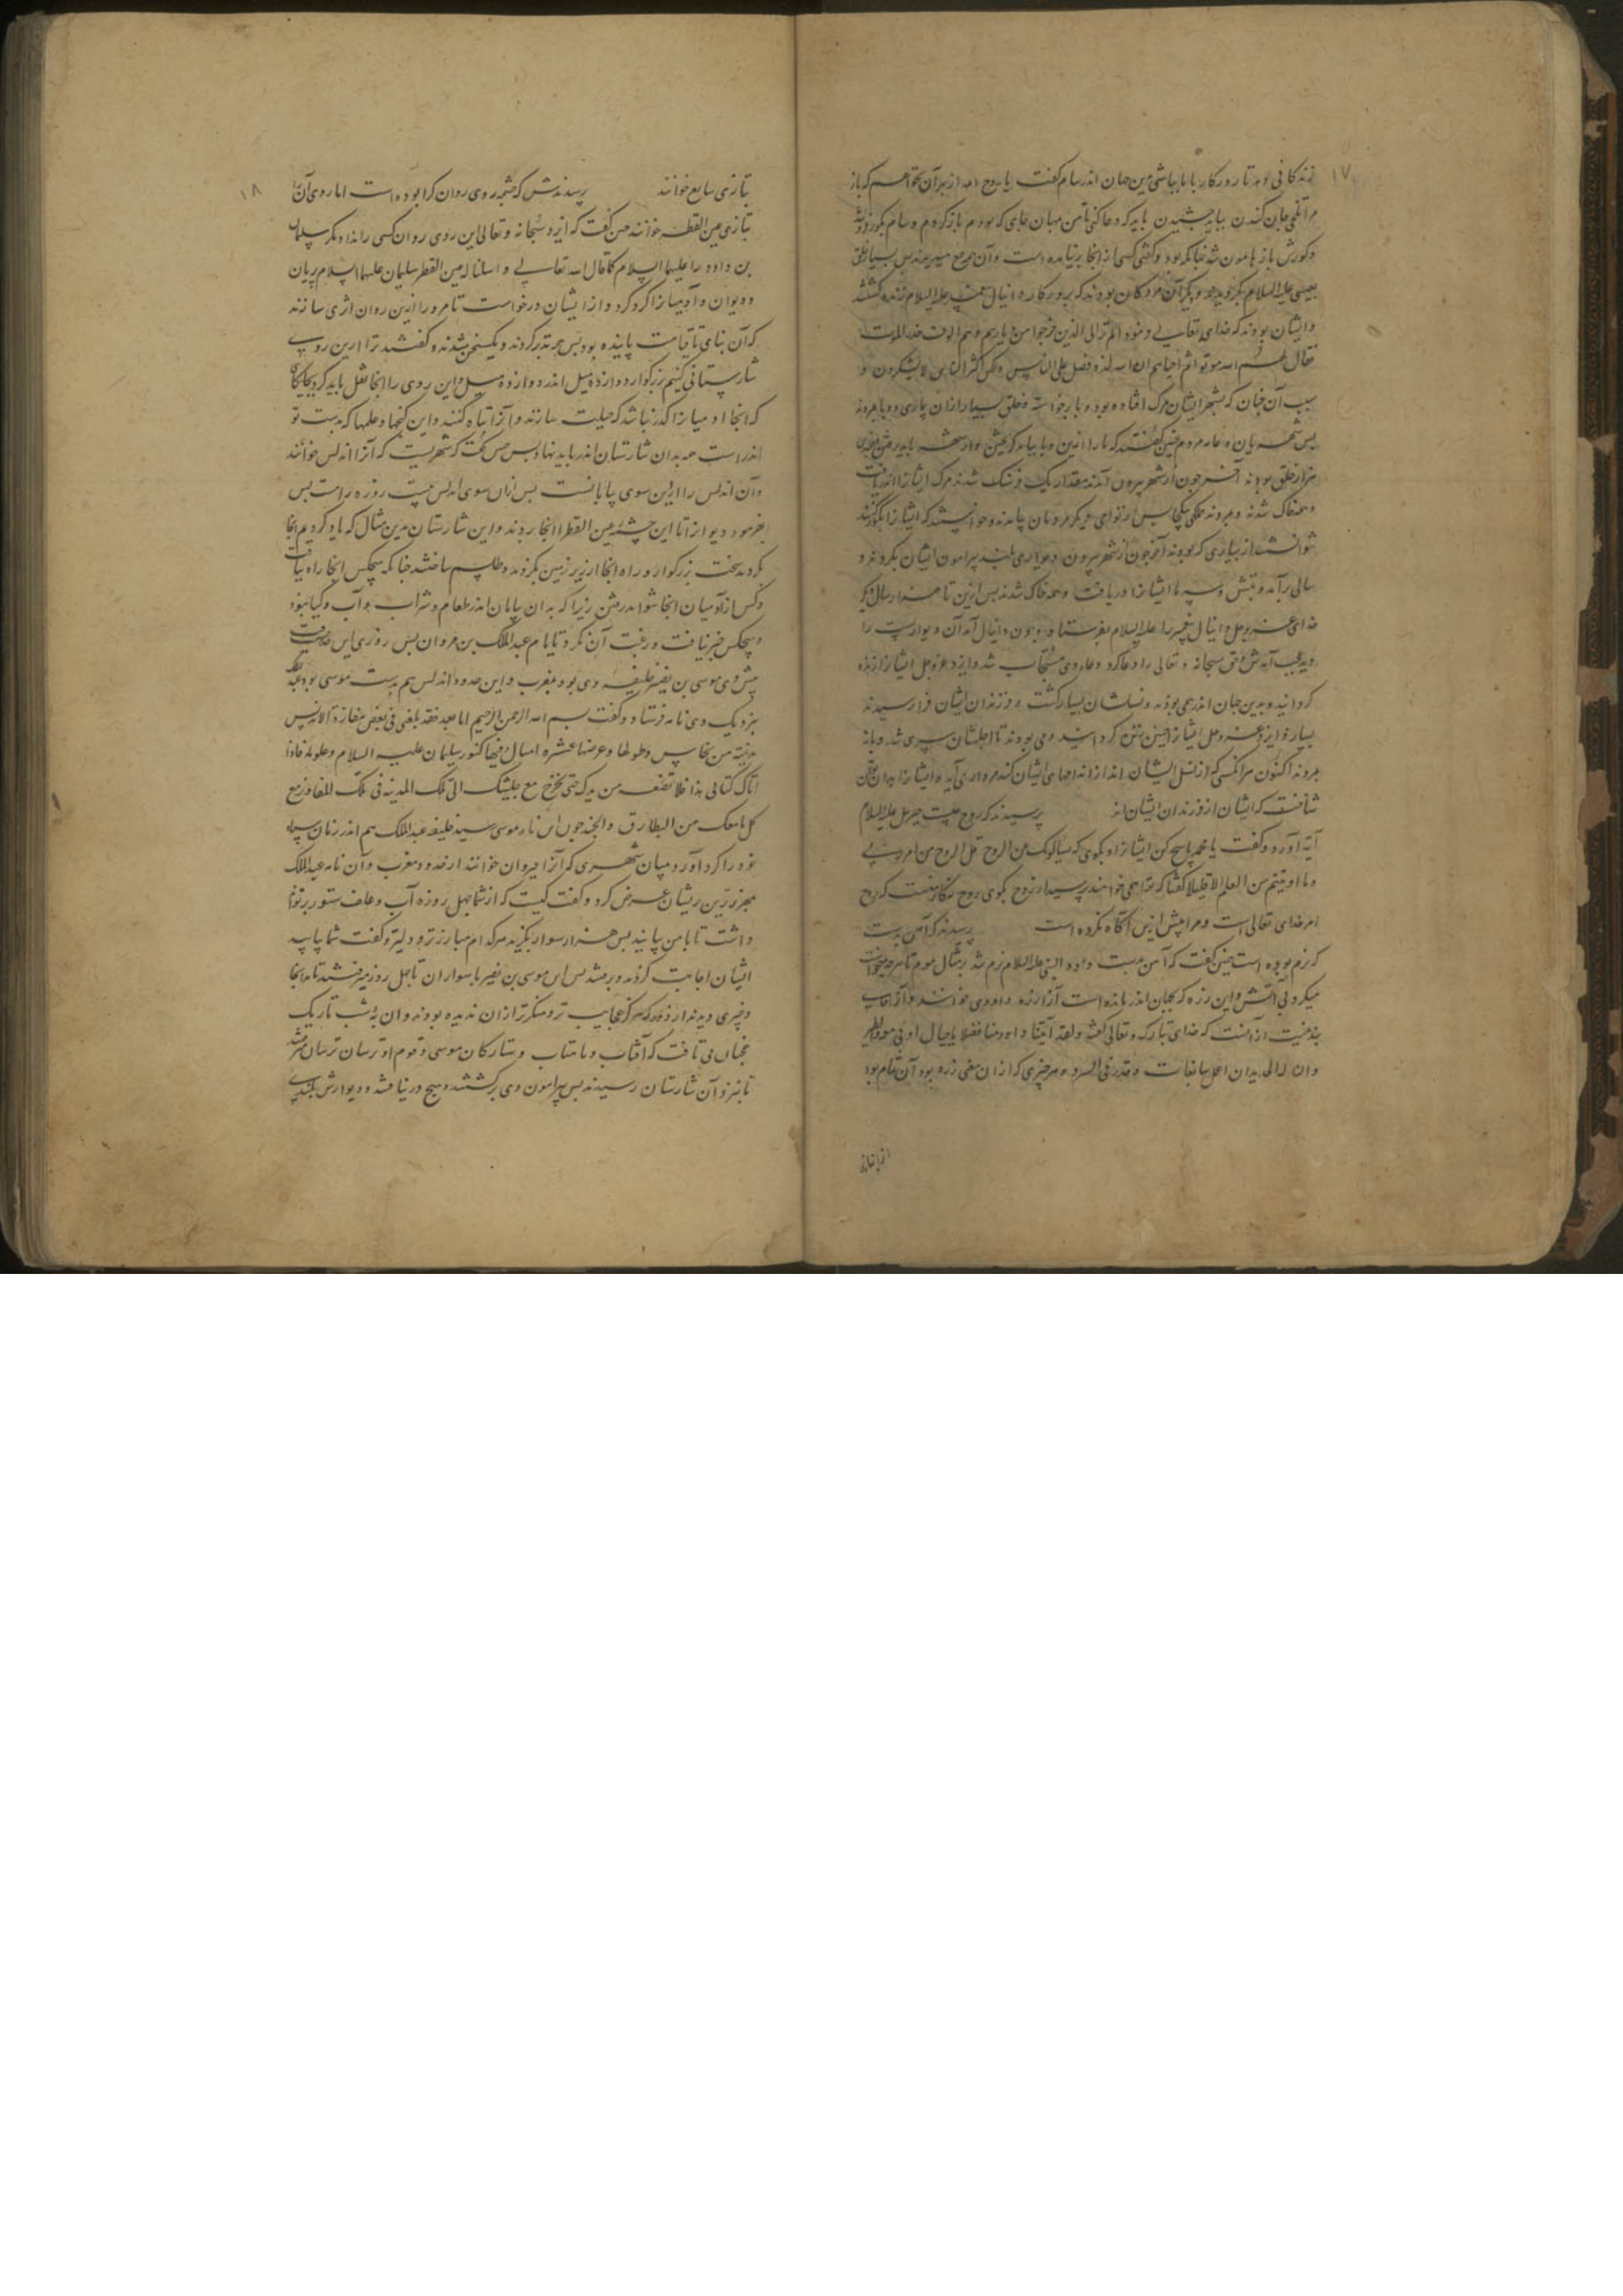 ۱۷
زندکانی تو بد تا روزکار با ما بباشی بدین جهان اندر سام کفت یا روح الله از بهر آن نخواهم که باز
مرا تلخی جان کندن بباید چشیدن باید که دعا کنی تا من مهمان جای که بودم باز کردم و سام بکور فرو شد
و کورش باز هامون شد چنانکه بود و کفتی کسی از انجا برنیامده است و آن جمع میدیدند پس بسیار خلق
بعیسی علیه السلام بکرویدند و دیکر آن مردکان بودند که بروزکار دانیال علیه السلام زنده کشتند
و ایشان بودند که خدای تعالی فرمود الم تر الی الذین خرجوا من دیارهم و هم الوف حذر الموت
فقال لهم الله موتوا ثم احیاهم ان الله لذو فضل علی الناس ولکن اکثر الناس لا یشکرون و
سبب آن چنان که بشهر ایشان مرک افتاده بود و وبا برخواسته و خلق بسیار از ان بیماری و وبا بمردند
پس شهریان و عام مردم چنین کفتند که ما را ازین وبا بباید کریختن و از شهر بباید رفتن چندین
هزار خلق بودند آخر چون از شهر بیرون آمدند مقدار یک فرسنک شدند مرک ایشانرا اندریافت
و همه خاک شدند و بمردند جملکی یکجا پس از نواحی دیکر مردمان بیامدند و خواستند که ایشانرا بکور کنند
نتوانستند از بسیاری که بودند آخر چون از شهر بیرون دیواری بلند پیرامون ایشان بکردند و
سالی برآمد و تبش و سرما ایشانرا دریافت و همه خاک شدند پس ازین تا هزار سال دیکر
خدای عز و جل دانیال پیغمبر را علیه السلام بفرستاد و چون دانیال آمد آن دیوارست را
دید عجب آمدش حق سبحانه و تعالی را دعا کرد دعاء وی مستجاب شد و ایزد عز و جل ایشانرا زنده
کردانید و بدین جهان اندر همی بودند و نسلشان بسیار کشت و فرزندان ایشان فرا رسیدند
بسیار و ایزد عز و جل ایشانرا ایمن بتن کردانید و می بودند تا اجلشان سپری شد و باز
بمردند اکنون هر آنکسی که از نسل ایشان اند از اندامهای ایشان کند مرداری آید و ایشانرا بدان توان
شناخت که ایشان از فرزندان ایشان اند پرسیدند که روح چیست جبریل علیه السلام
آیة آورد و کفت یا محمد پاسخ کن ایشانرا و بکوی که یسألونک عن الروح قل الروح من امر ربی
و ما اوتیتم من العلم الا قلیلا کفتا که ترا همی خواهند پرسید از روح بکوی روح از کار منست که روح
امر خدای تعالی است و مرا پیش ازین آکاه نکرده است پرسیدند که آهن بدست
که نرم بوده است چنین کفت که آهن بدست داود النبی علیه السلام نرم شد بر مثال موم تا هر چه میخواست
میکرد بی آتش و این زره که بجهان اندر مانده است آنرا زره داودی خوانند و آنرا عجایب
بدینست از انست که خدای تبارک و تعالی کفت و لقد آتینا داود منا فضلا یا جبال اوبی معه والطیر
و النا له الحدید ان اعمل سابغات و قدر فی السرد و هر چیزی که از ان معنی زره بود آن تمام بود
۱۸
بتازی سابغ خوانند پرسیدندش که چشمه روی روان کرا بوده است اما روی آن را
بتازی عین القطر خوانند چنین کفت که ایزد سبحانه و تعالی این روی روان کسی را نداد مکر سلیمان
بن داود را علیهما السلام کما قال الله تعالی و اسلنا له عین القطر سلیمان علیهما السلام پریان
و دیوان و آدمیانرا کرد کرد و از ایشان درخواست تا مرورا ازین روان اثری سازند
که آن بنای تا قیامت پاینده بود پس همه تدبر کردند و یکسخن شدند و کفتند ترا ازین روی
شارستانی کنیم بزرکوار دوازده میل اندر دوازده میل و این روی را انجا نقل باید کرد بجایکاهی
که انجا آدمیانرا کذر نباشد که حیلت سازند و آنرا تباه کنند و این کنجها و علمها که بدست تو
اندر است همه بدان شارستان اندر باید نهاد پس جنس کفت که شهریست که آنرا اندلس خوانند
و آن اندلس را ازین سوی بیابانست پس ازان سوی اندلس بیست روزه راهست پس
بفرمود دیوانرا تا این چشمه عین القطر انجا بردند و این شارستان بدین مثال که یاد کردیم انجا
بکردند سخت بزرکوار و راه انجا از زیر زمین بکردند و طلسم ساختند چنانکه هیچکس انجا راه نیافت
و کس از آدمیان انجا نتواند رفتن زیرا که بدان بیابان اندر طعام و شراب و آب و کیا نبود
و هیچکس خبر نیافت و رغبت آن نکرد تا بایام عبدالملک بن مروان پس روزی این حدیث
پیش وی موسی بن نصیر خلیفه وی بود بمغرب و این حدود اندلس هم بدست موسی بود عبدالملک
بنزدیک وی نامه فرستاد و کفت بسم الله الرحمن الرحیم اما بعد فقد بلغنی فی بعض مفازة الاندلس
مدینة من نحاس و طولها و عرضها عشره امیال فیها کنوز سلیمان علیه السلام و علومه فاذا
اتاک کتابی هذا فلا تضعه من یدک حتی تخرج مع جیشک الی تلک المدینه فی تلک المفاوز مع
کل مامعک من البطارق و الجند چون این نامه موسی رسید خلیفه عبدالملک هم اندر زمان سپاه
خود را کرد آورد میان شهری که آنرا قیروان خوانند از حدود مغرب و آن نامه عبدالملک
مهتر ترین ریشان عرض کرد و کفت کیست که از شما چهل روزه آب و علف ستور برتواند
داشت تا با من بیایند پس هزار سوار بکزید هر کدام مبارزتر و دلیرتر و کفت شما بیایید
ایشان اجابت کردند و برفتند پس این موسی بن نصیر با سواران تا چهل روز میرفتند تا بدانجا
و چیزی دیدند از دور که هرکز عجایب تر و منکرتر از ان ندیده بودند و ان بشب تاریک
چنان می تافت که آفتاب و ماهتاب و ستارکان موسی و قوم او ترسان ترسان میرفتند
تا بنزد آن شارستان رسیدند پس پیرامون وی برکشتند و هیچ در نیافتند و دیوارش بلندی